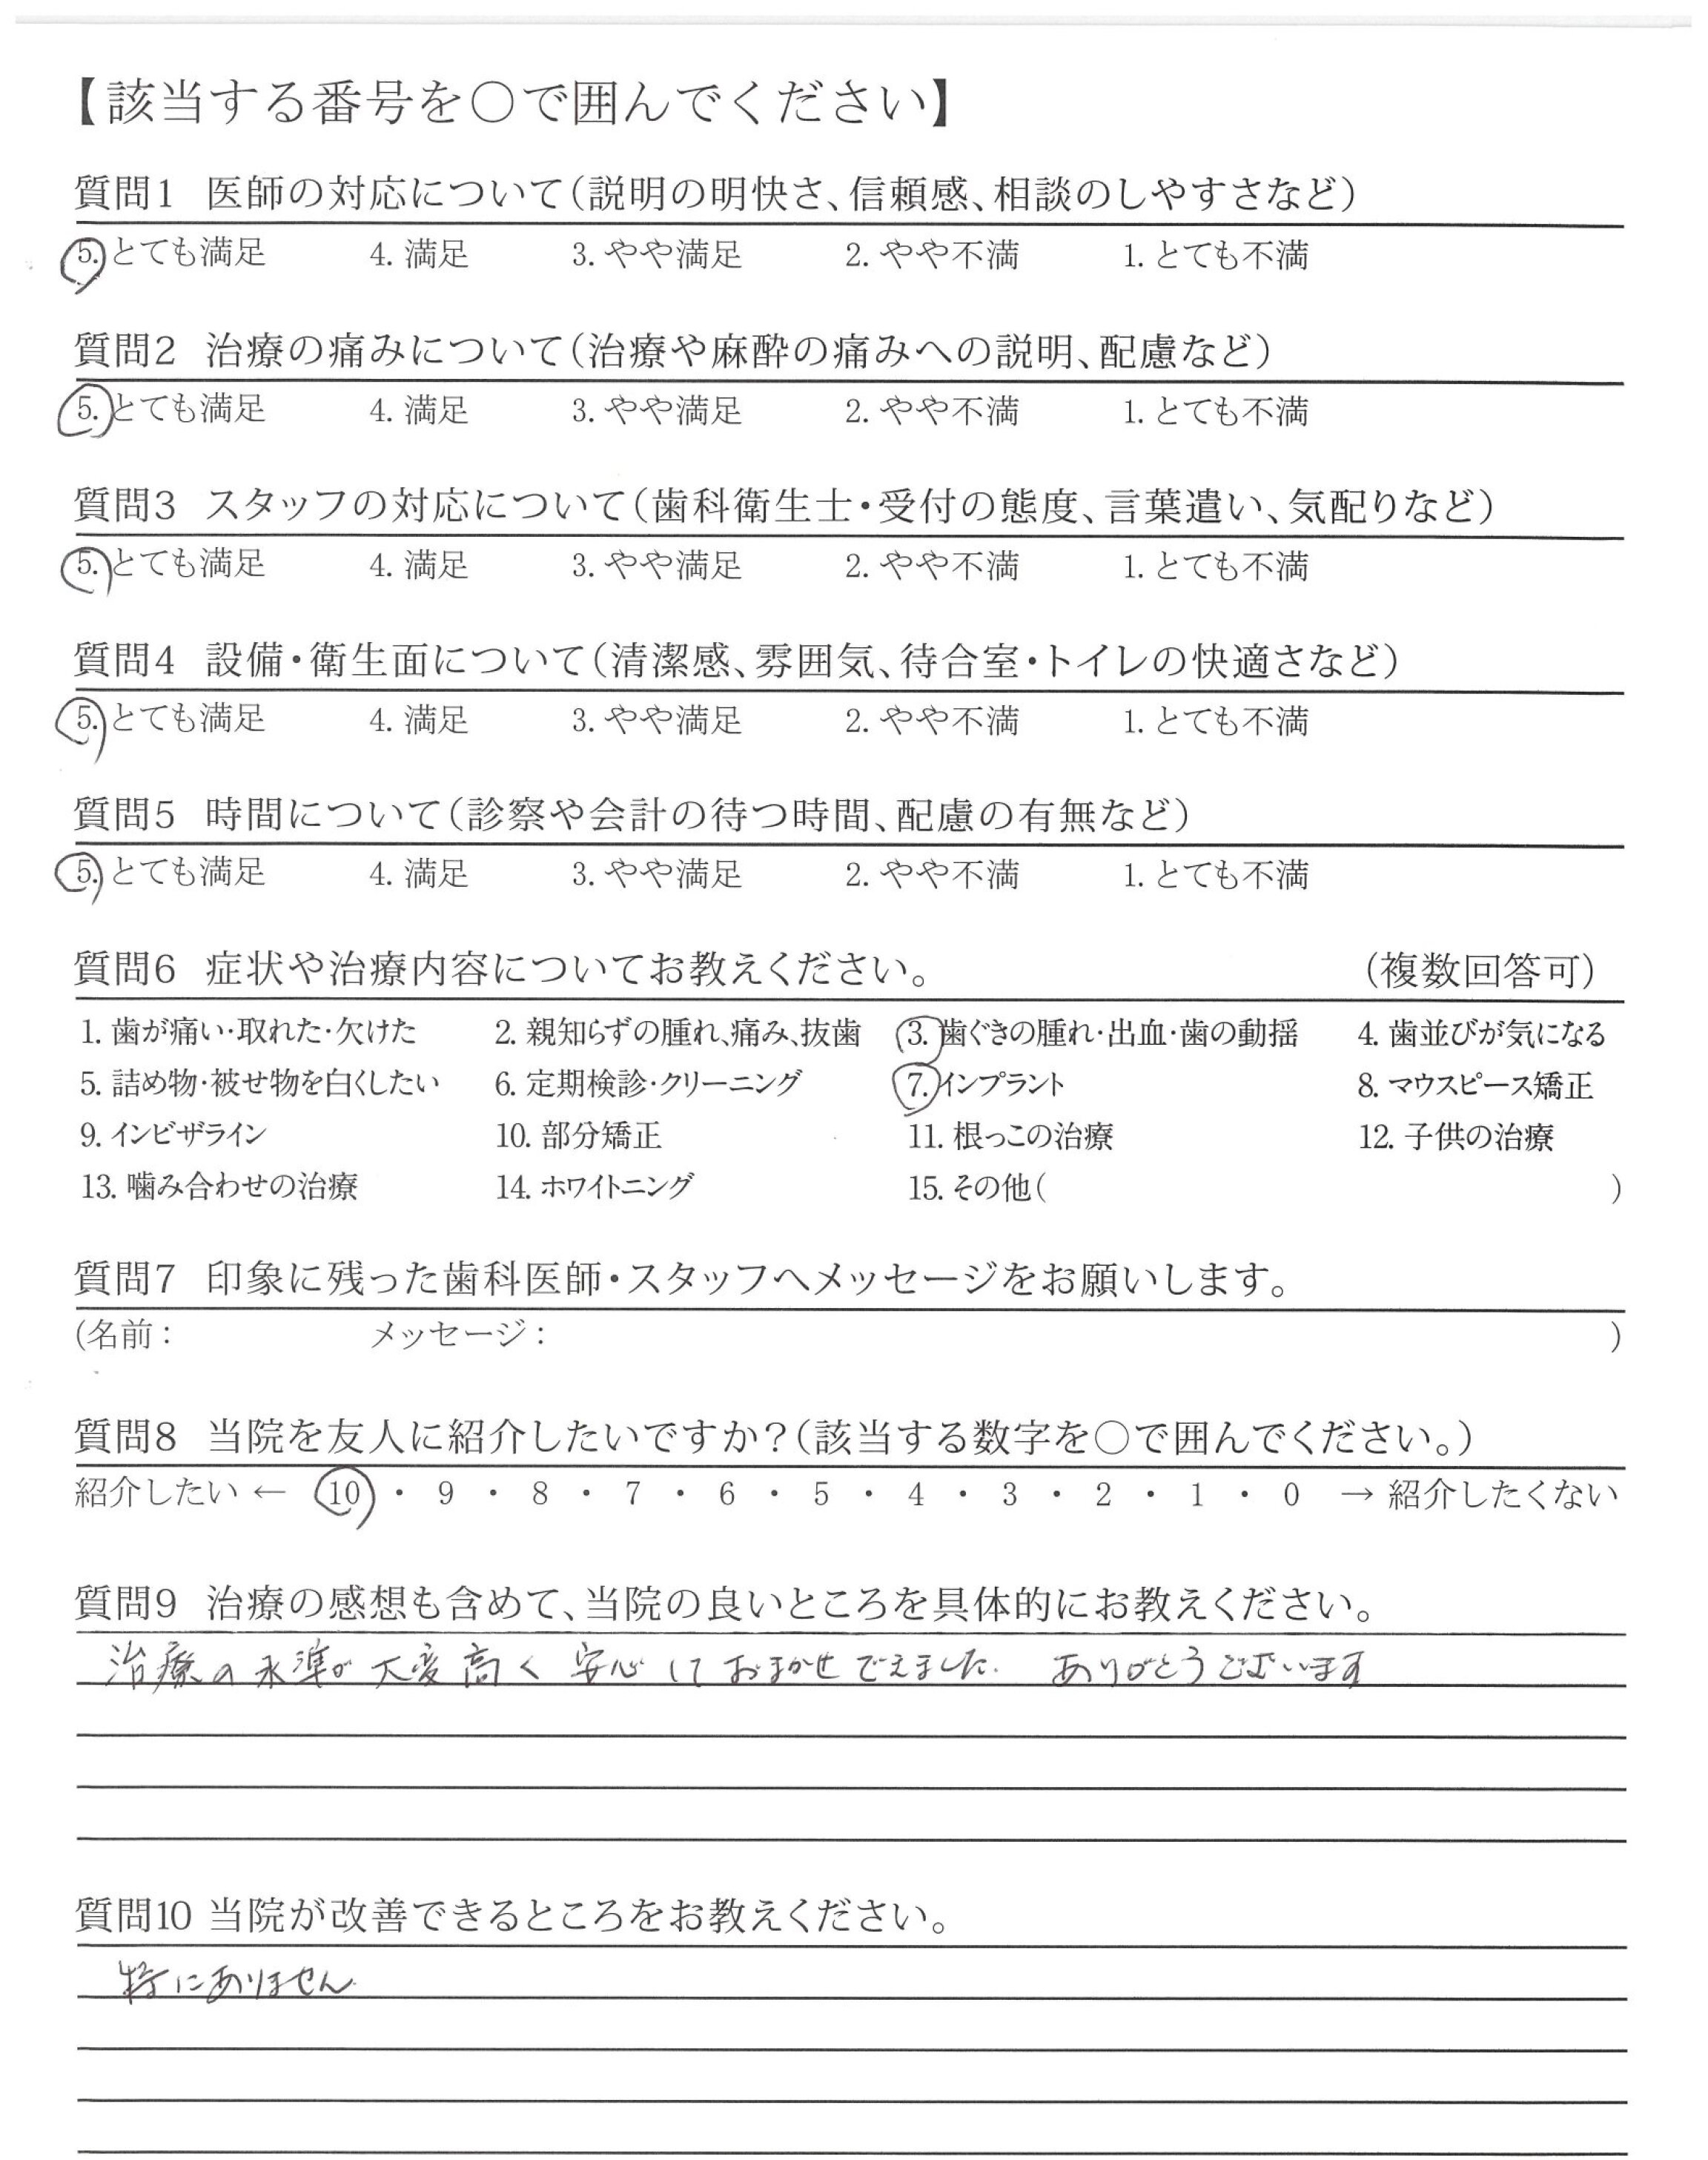 【該当する番号を○で囲んでください】
質問1 医師の対応について(説明の明快さ、信頼感、相談のしやすさなど)
5. とても満足 4. 満足 3. やや満足 2. やや不満 1. とても不満
質問2 治療の痛みについて(治療や麻酔の痛みへの説明、配慮など)
5. とても満足 4. 満足 3. やや満足 2. やや不満 1. とても不満
質問3 スタッフの対応について(歯科衛生士・受付の態度、言葉遣い、気配りなど)
5. とても満足 4. 満足 3. やや満足 2. やや不満 1. とても不満
質問4 設備・衛生面について(清潔感、雰囲気、待合室・トイレの快適さなど)
5. とても満足 4. 満足 3. やや満足 2. やや不満 1. とても不満
質問5 時間について(診察や会計の待つ時間、配慮の有無など)
5. とても満足 4. 満足 3. やや満足 2. やや不満 1. とても不満
質問6 症状や治療内容についてお教えください。 (複数回答可)
1. 歯が痛い・取れた・欠けた 2. 親知らずの腫れ、痛み、抜歯 3. 歯ぐきの腫れ・出血・歯の動揺 4. 歯並びが気になる
5. 詰め物・被せ物を白くしたい 6. 定期検診・クリーニング 7. インプラント 8. マウスピース矯正
9. インビザライン 10. 部分矯正 11. 根っこの治療 12. 子供の治療
13. 噛み合わせの治療 14. ホワイトニング 15. その他( )
質問7 印象に残った歯科医師・スタッフへメッセージをお願いします。
(名前: メッセージ: )
質問8 当院を友人に紹介したいですか?(該当する数字を○で囲んでください。)
紹介したい ← 10 ・ 9 ・ 8 ・ 7 ・ 6 ・ 5 ・ 4 ・ 3 ・ 2 ・ 1 ・ 0 → 紹介したくない
質問9 治療の感想も含めて、当院の良いところを具体的にお教えください。
治療の水準が大変高く 安心して おまかせ ありがとうございます
質問10 当院が改善できるところをお教えください。
特にありません